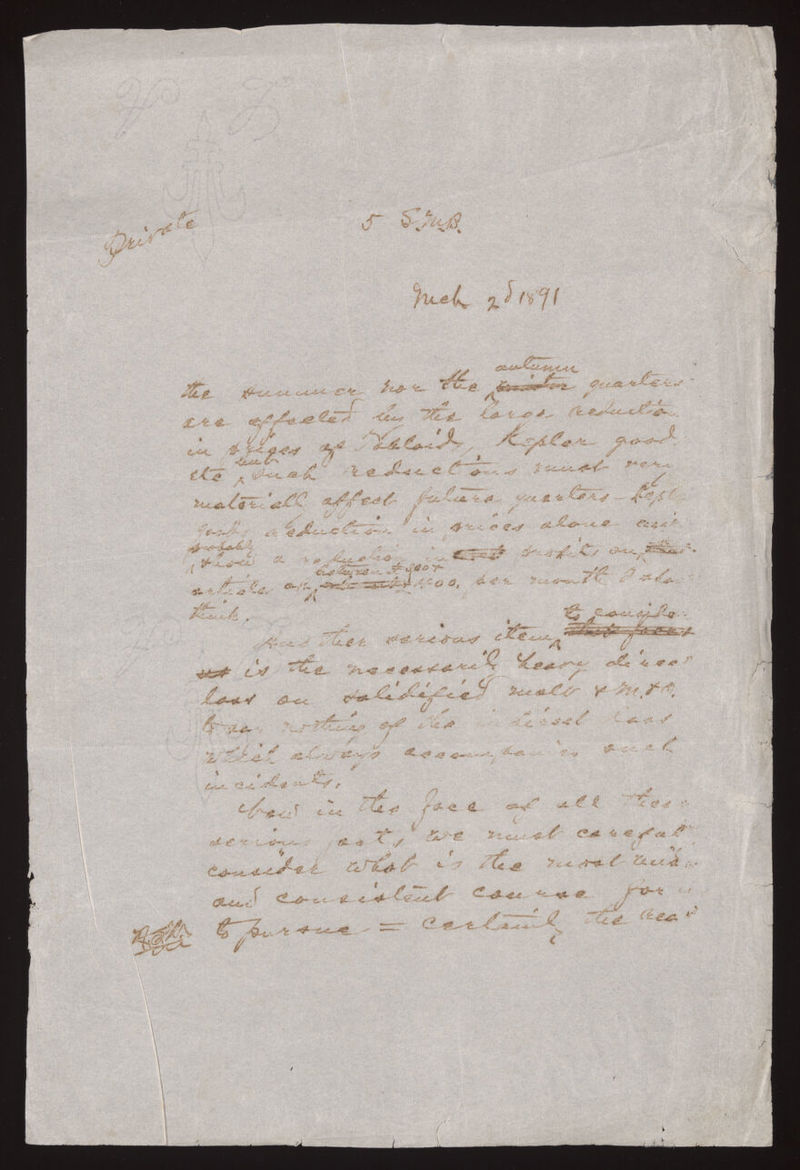 Private
5 S.M.B.
Mch 2d 1891
autumn
the summer nor the winter quarters
are affected by the large reductio
in prices of Tabloids, Kepler good
but
etc such reductions must very
materiall affect future quarters - Kepl
goods reduction in prices alone will
probably
show a reduction in profits on
between £
article of 100. per month I
think.
to conside
Another serious item this faces
us is the necessarily heavy direc
loss on solidified malt & M.&P.
to say nothing of the indirect loss
which always accompanies such
incidents.
Now in the face of all these
serious facts we must careful
consider what is the most wise
and consistent course for u
to pursue = certainly the